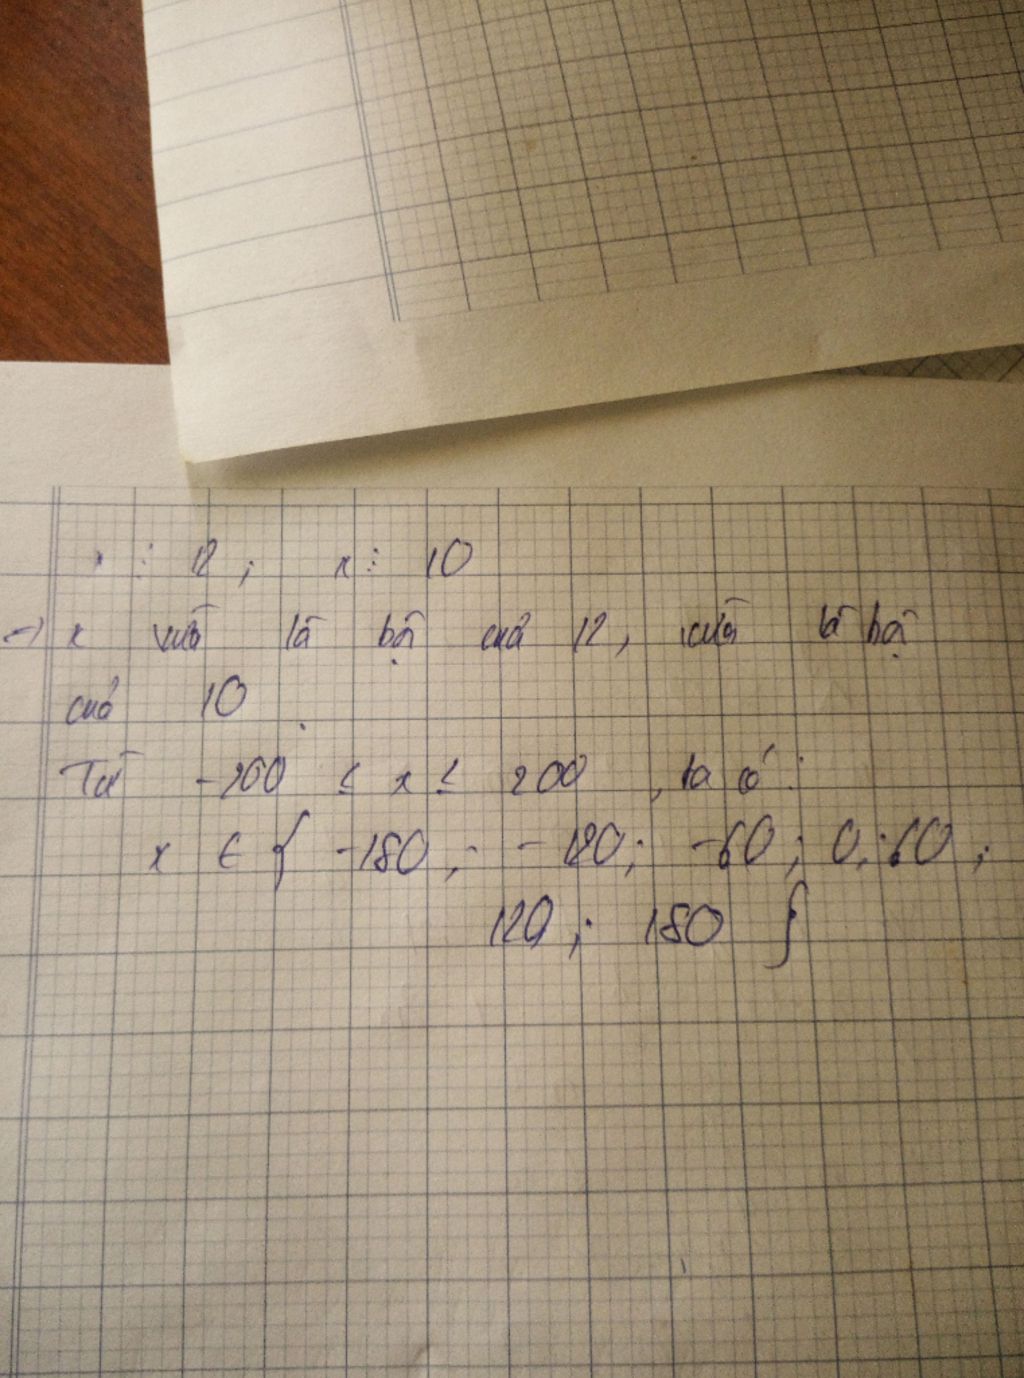 x ⋮ 12 ; x ⋮ 10
=) x vừa là bội của 12, vừa là bội
của 10.
Từ -200 ≤ x ≤ 200, ta có :
x ∈ { -180 ; -120 ; -60 ; 0 ; 60 ;
120 ; 180 }